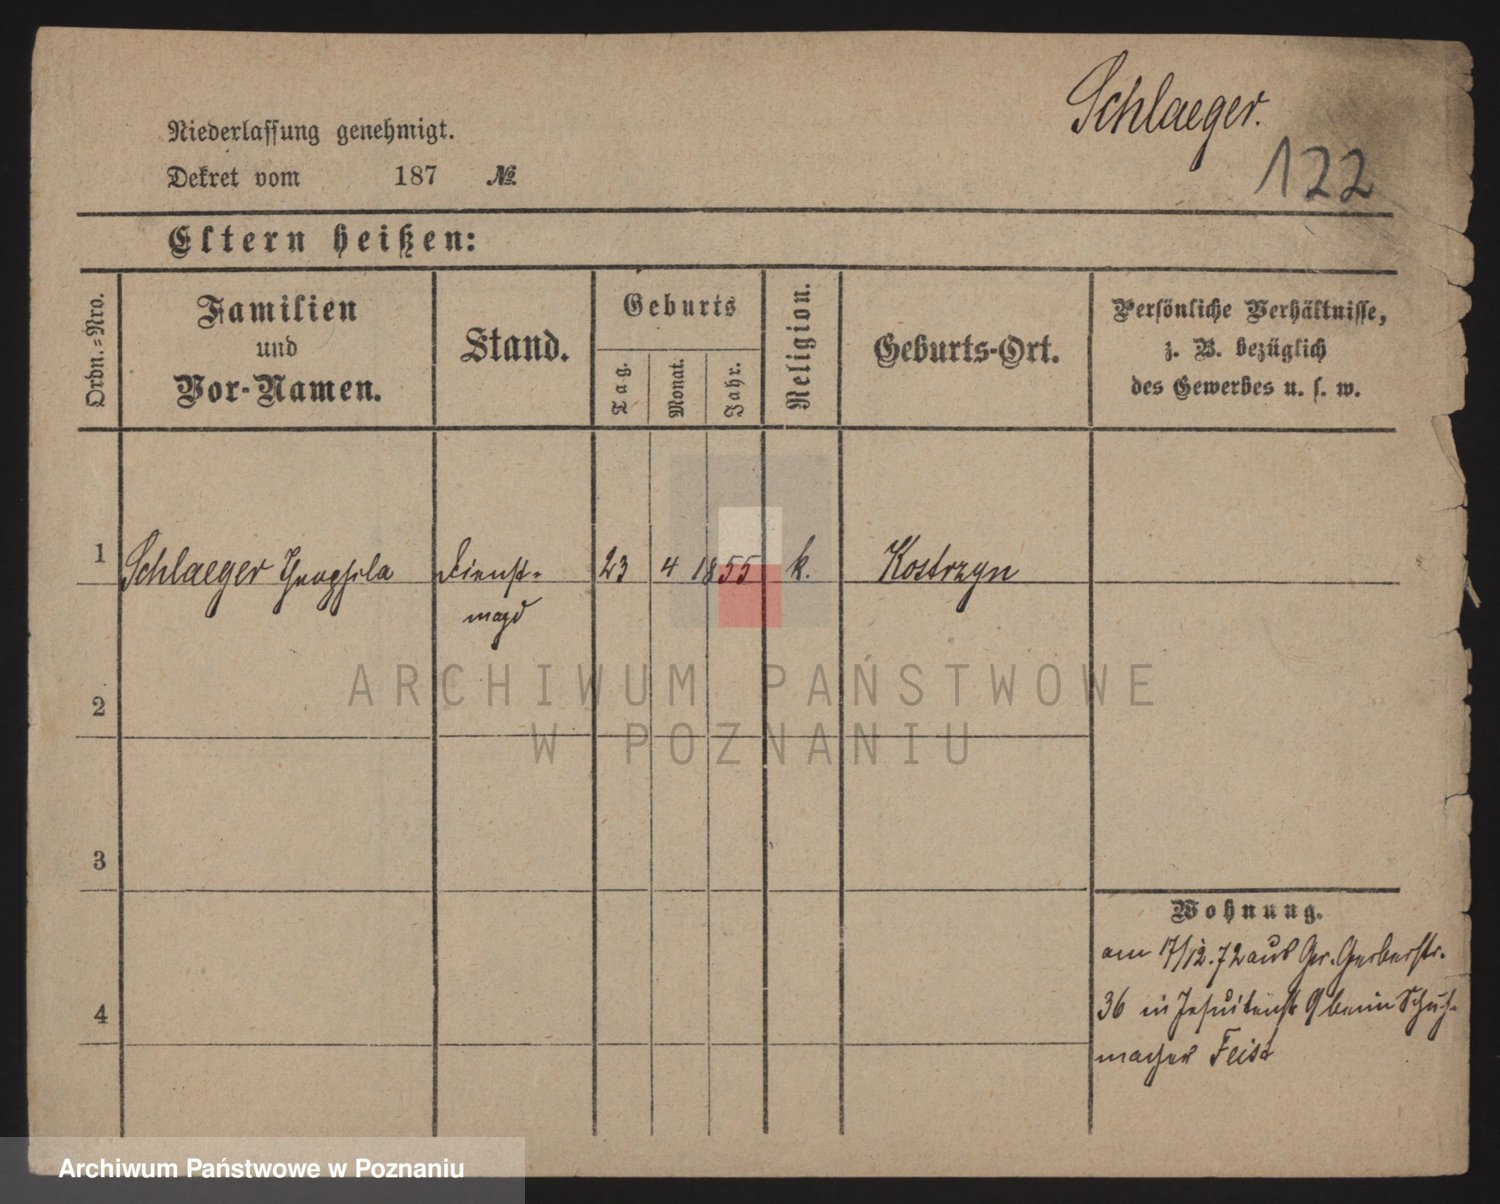 Schlaeger.
122
Niederlassung genehmigt.
Dekret vom 187 №
Eltern heißen:
Ordn.-Nro.
Familien
und
Vor-Namen.
Stand.
Geburts
Tag.
Monat.
Jahr.
Religion.
Geburts-Ort.
Persönliche Verhältnisse,
z. B. bezüglich
des Gewerbes u. s. w.
1 Schlaeger Theophila Dienst- 23 4 1855 k. Kostrzyn
magd
ARCHIWUM PAŃSTWOWE
W POZNANIU
2
3
4
Wohnung.
am 17/12.72 aus Gr. Gerberstr.
36 in Jesuitenstr 9 beim Schuh-
macher Feist
Archiwum Państwowe w Poznaniu